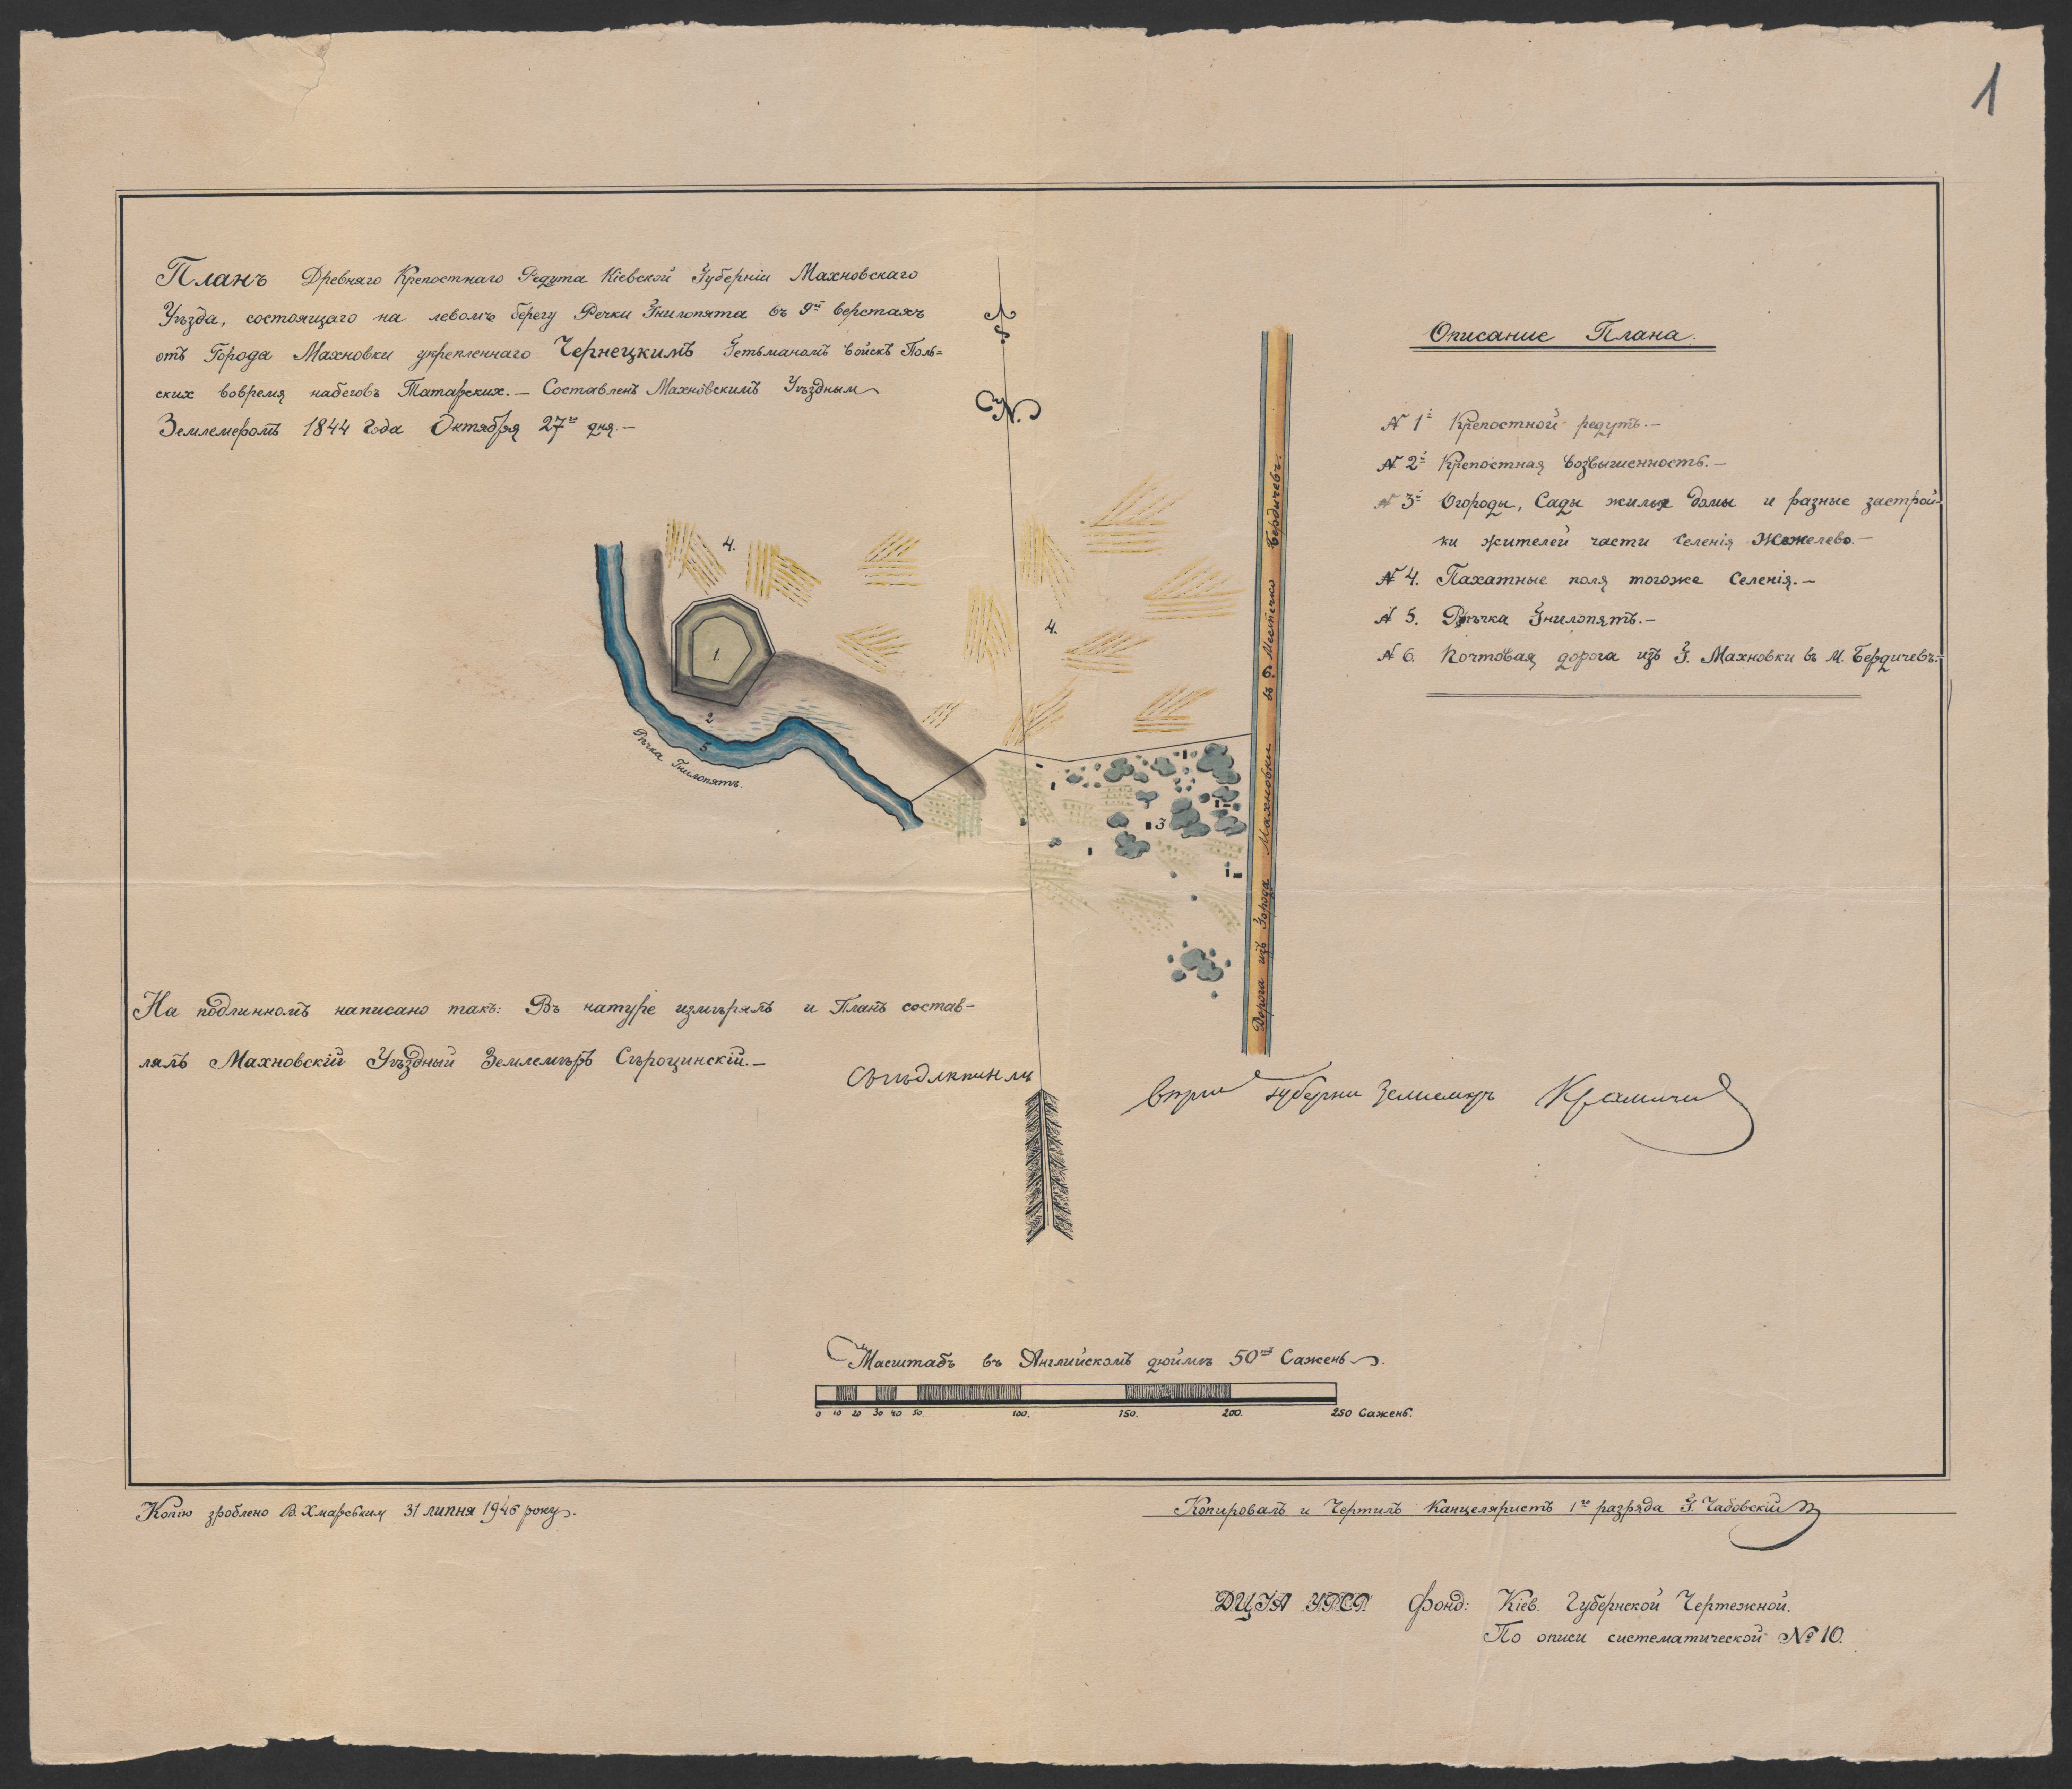 1
Планъ Древняго Крепостнаго Редута Кіевской Губерніи Махновскаго
Уѣзда, состоящаго на левомъ берегу Речки Гнилопята въ 9ти верстахъ
отъ Города Махновки укрепленнаго Чернецкимъ Гетьманомъ войскъ Поль=
ских вовремя набеговъ Татарских.— Составленъ Махновскимъ Уѣздным
Землемеромъ 1844 Года Октября 27го дня.—
N.
Описание Плана.
N 1й Крепостной редутъ.—
N 2й Крепостная возвышенность.—
N 3й Огороды, Сады жилые домы и разные застрой-
ки жителей части Селенія Жежелево.—
N 4. Пахатные поля тогоже Селенія.—
N 5. Рѣчка Гнилопятъ.—
N 6. Почтовая дорога изъ Г. Махновки въ М. Бердичевъ.—
4.
1.
4.
2
5
Рѣчка Гнилопятъ.
3
Дорога изъ Города Махновки въ Местечко Бердичевъ.
На подлинномъ написано такъ: Въ натуре измѣрялъ и Планъ состав-
лялъ Махновскій Уѣздный Землемѣръ Сѣроцинскій.—
Губерни Землемѣръ
Масштабъ въ Английскомъ дюймѣ 50тъ Сажень.
0 10 20 30 40 50 100. 150. 200. 250 Сажень.
Копію зроблено В. Хмарським 31 липня 1946 року.
Копировалъ и Чертилъ Канцеляристъ 1го разряда Г. Чабовскій
ДЦІА УРСР. Фонд: Кіев. Губернской Чертежной.
По описи систематической № 10.